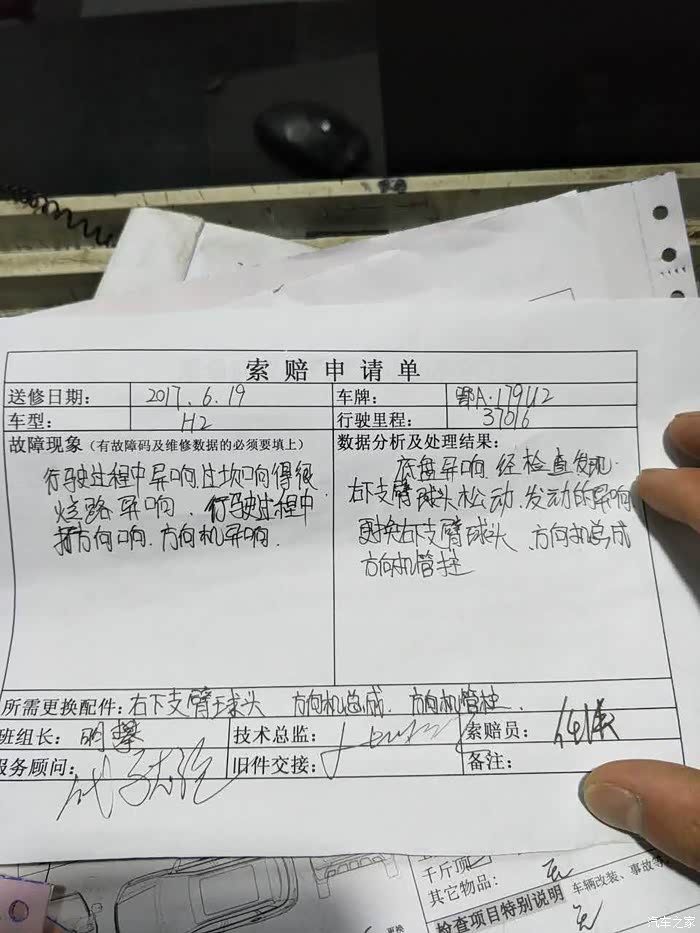 索赔申请单
送修日期： 2017.6.19 车牌： 鄂A·179U2
车型： H2 行驶里程： 37016
故障现象（有故障码及维修数据的必须要填上） 数据分析及处理结果：
行驶过程中异响,过坎响得很
烂路异响.行驶过程中
打方向响.方向机异响.
底盘异响.经检查发现.
右下支臂球头松动.发动的异响
更换右下支臂球头、方向机总成
方向机管柱
所需更换配件：右下支臂球头 方向机总成.方向机管柱.
班组长： 技术总监： 索赔员：
服务顾问： 旧件交接： 备注：
千斤顶
其它物品： 无
检查项目特别说明 车辆改装、事故等
无
更换
汽车之家